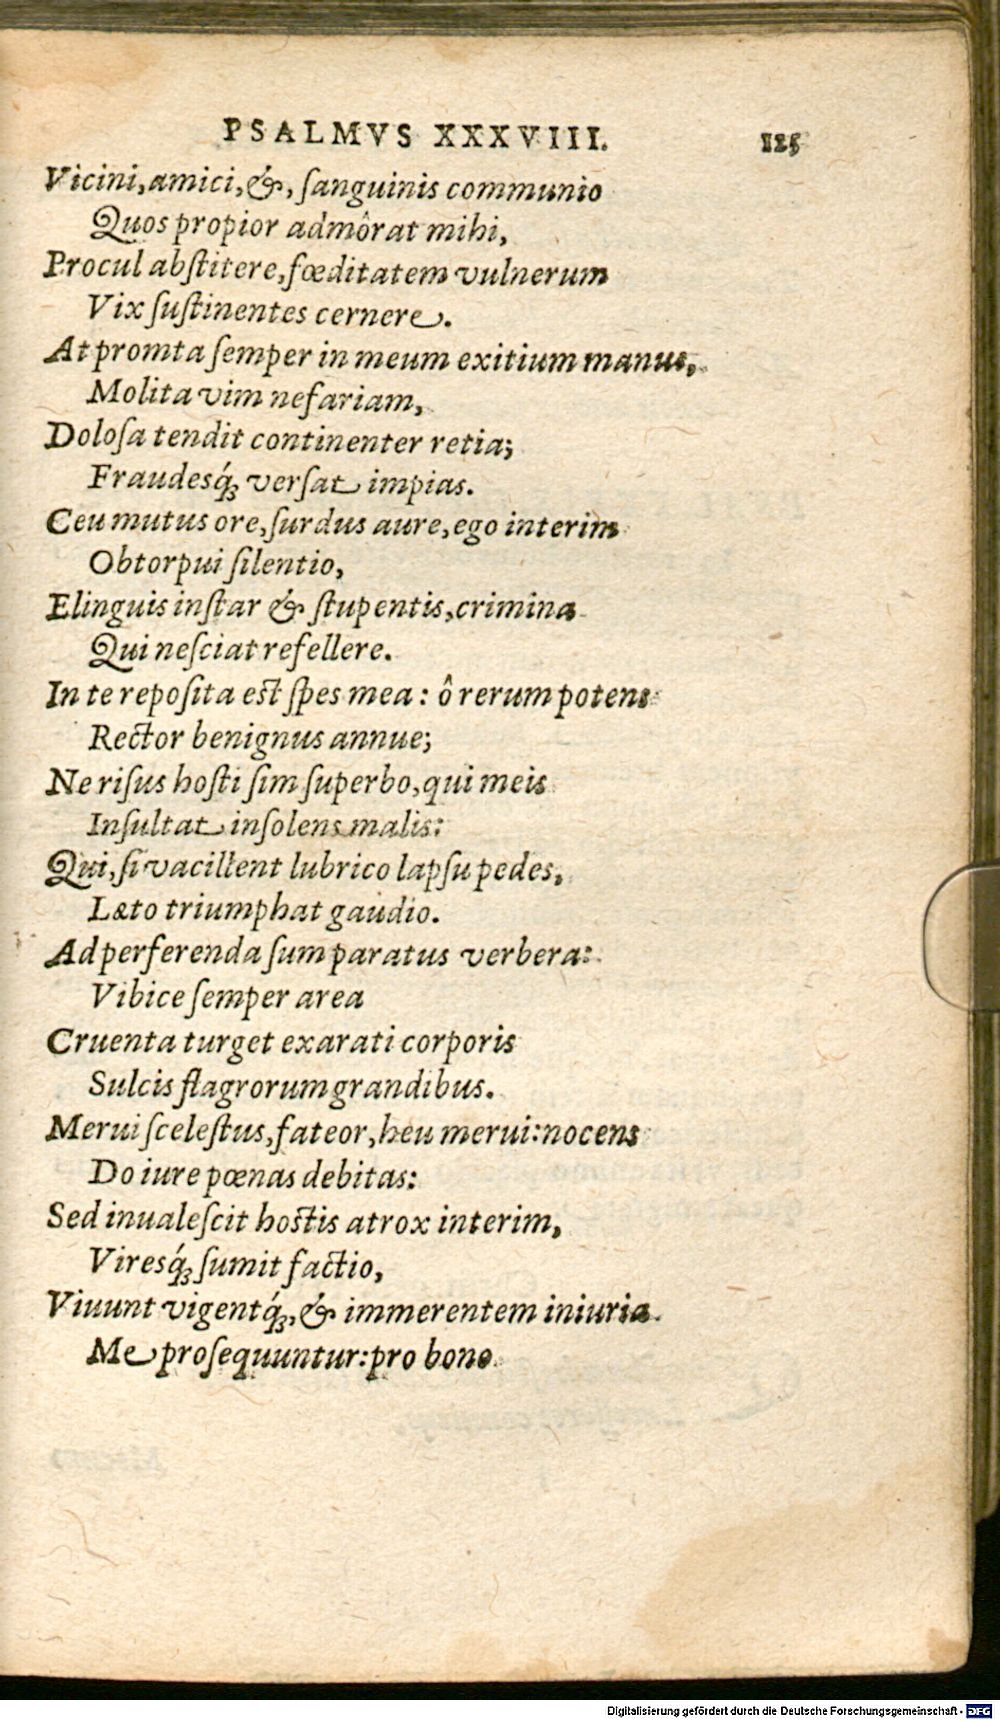 PSALMVS XXXVIII. 125
Vicini, amici, &, ſanguinis communio
Quos propior admôrat mihi,
Procul abſtitere, fœditatem vulnerum
Vix ſuſtinentes cernere.
At promta ſemper in meum exitium manus,
Molita vim nefariam,
Doloſa tendit continenter retia;
Fraudesq́; verſat impias.
Ceu mutus ore, ſurdus aure, ego interim
Obtorpui ſilentio,
Elinguis inſtar & ſtupentis, crimina
Qui neſciat refellere.
In te repoſita eſt ſpes mea: ô rerum potens
Rector benignus annue;
Ne riſus hoſti ſim ſuperbo, qui meis
Inſultat inſolens malis:
Qui, ſi vacillent lubrico lapſu pedes,
Læto triumphat gaudio.
Ad perferenda ſum paratus verbera:
Vibice ſemper area
Cruenta turget exarati corporis
Sulcis flagrorum grandibus.
Merui ſceleſtus, fateor, heu merui: nocens
Do iure pœnas debitas:
Sed inualeſcit hoſtis atrox interim,
Viresq́; ſumit factio,
Viuunt vigentq́;, & immerentem iniuria
Me proſequuntur: pro bono
Digitalisierung gefördert durch die Deutsche Forschungsgemeinschaft - DFG